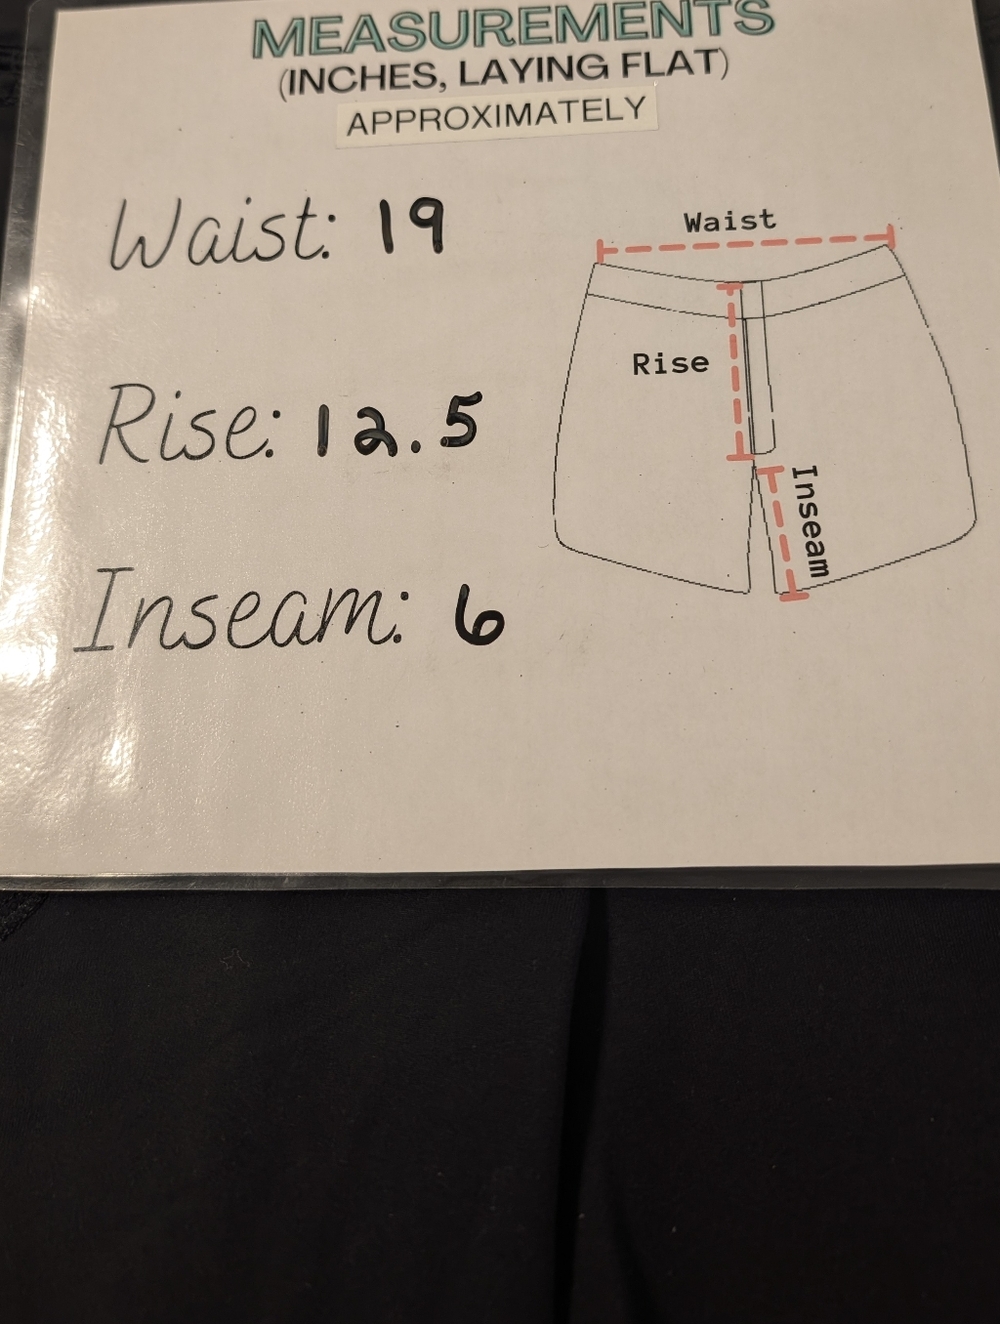 MEASUREMENTS
(INCHES, LAYING FLAT)
APPROXIMATELY
Waist: 19
Rise: 12.5
Inseam: 6
Waist
Rise
Inseam